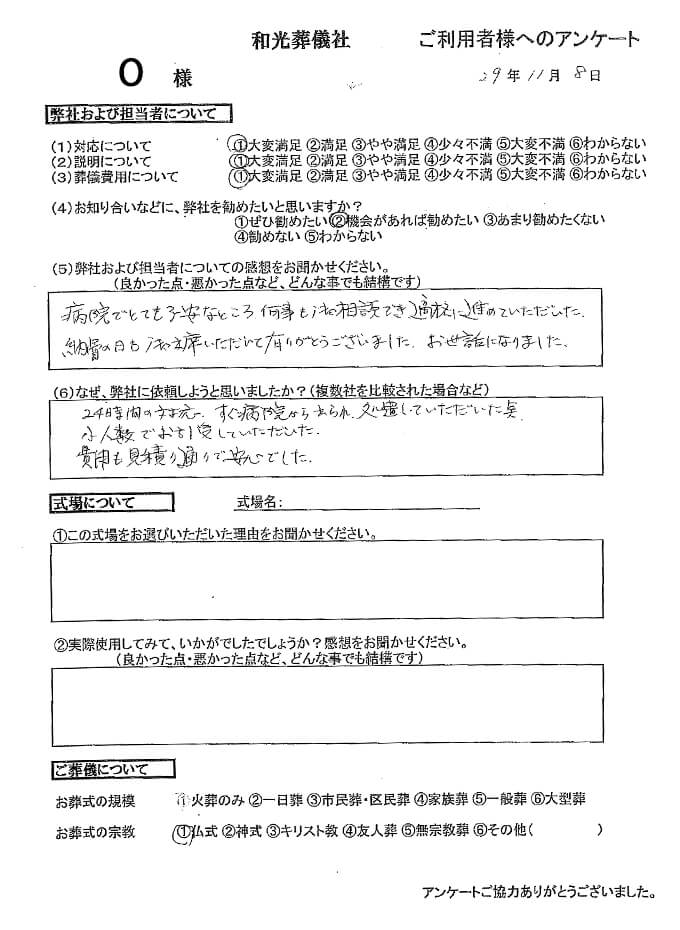 和光葬儀社 ご利用者様へのアンケート
O 様 29年11月8日
弊社および担当者について
(1)対応について ①大変満足 ②満足 ③やや満足 ④少々不満 ⑤大変不満 ⑥わからない
(2)説明について ①大変満足 ②満足 ③やや満足 ④少々不満 ⑤大変不満 ⑥わからない
(3)葬儀費用について ①大変満足 ②満足 ③やや満足 ④少々不満 ⑤大変不満 ⑥わからない
(4)お知り合いなどに、弊社を勧めたいと思いますか？
①ぜひ勧めたい ②機会があれば勧めたい ③あまり勧めたくない
④勧めない ⑤わからない
(5)弊社および担当者についての感想をお聞かせください。
(良かった点・悪かった点など、どんな事でも結構です)
病院でとても不安なところ 何事も 相談でき 進めていただいた.
納骨の日も 出席いただいて有りがとうございました. お世話になりました.
(6)なぜ、弊社に依頼しようと思いましたか？(複数社を比較された場合など)
24時間の対応. すぐ病院から 処置していただいた
少人数でお していただいた.
費用も見積り通りで安心でした.
式場について 式場名:
①この式場をお選びいただいた理由をお聞かせください。
②実際使用してみて、いかがでしたでしょうか？感想をお聞かせください。
(良かった点・悪かった点など、どんな事でも結構です)
ご葬儀について
お葬式の規模 ①火葬のみ ②一日葬 ③市民葬・区民葬 ④家族葬 ⑤一般葬 ⑥大型葬
お葬式の宗教 ①仏式 ②神式 ③キリスト教 ④友人葬 ⑤無宗教葬 ⑥その他( )
アンケートご協力ありがとうございました。